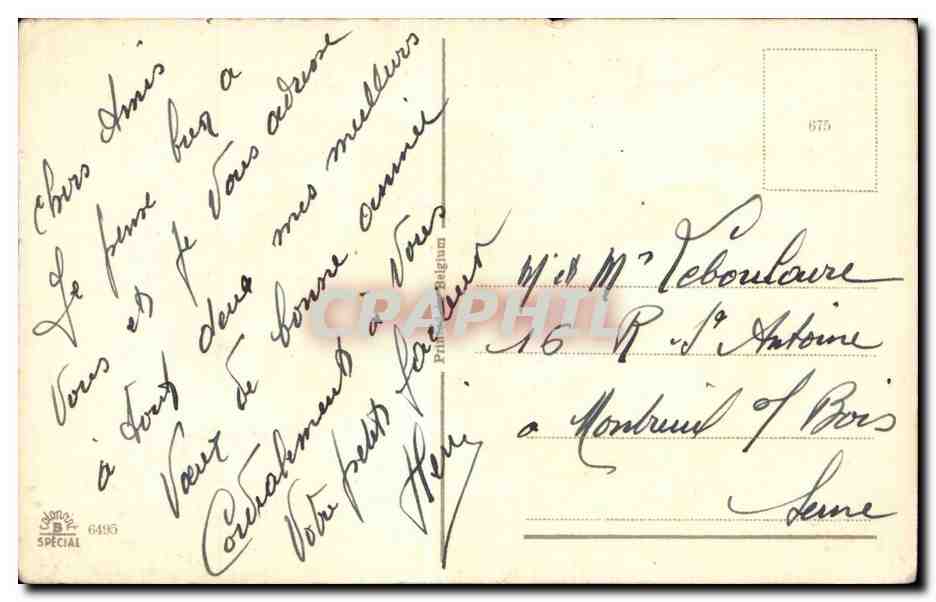 Chers Amis
Je pense bien a
Vous et je Vous adresse
à tout deux mes meilleurs
Vœux de bonne année
Cordialement à Vous
Votre petit facteur
Henri
Printed in Belgium
675
M et Mr Reboulaire
16 R St Antoine
a Montreuil s/ Bois
Seine
colorprint
B
SPÉCIAL
6495
CRAPHIL